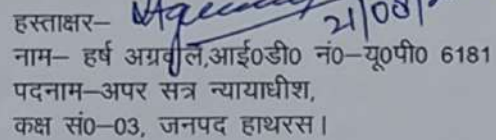 हस्ताक्षर–
21/08/
नाम– हर्ष अग्रवाल,आई0डी0 नं0–यू0पी0 6181
पदनाम–अपर सत्र न्यायाधीश,
कक्ष सं0–03, जनपद हाथरस।